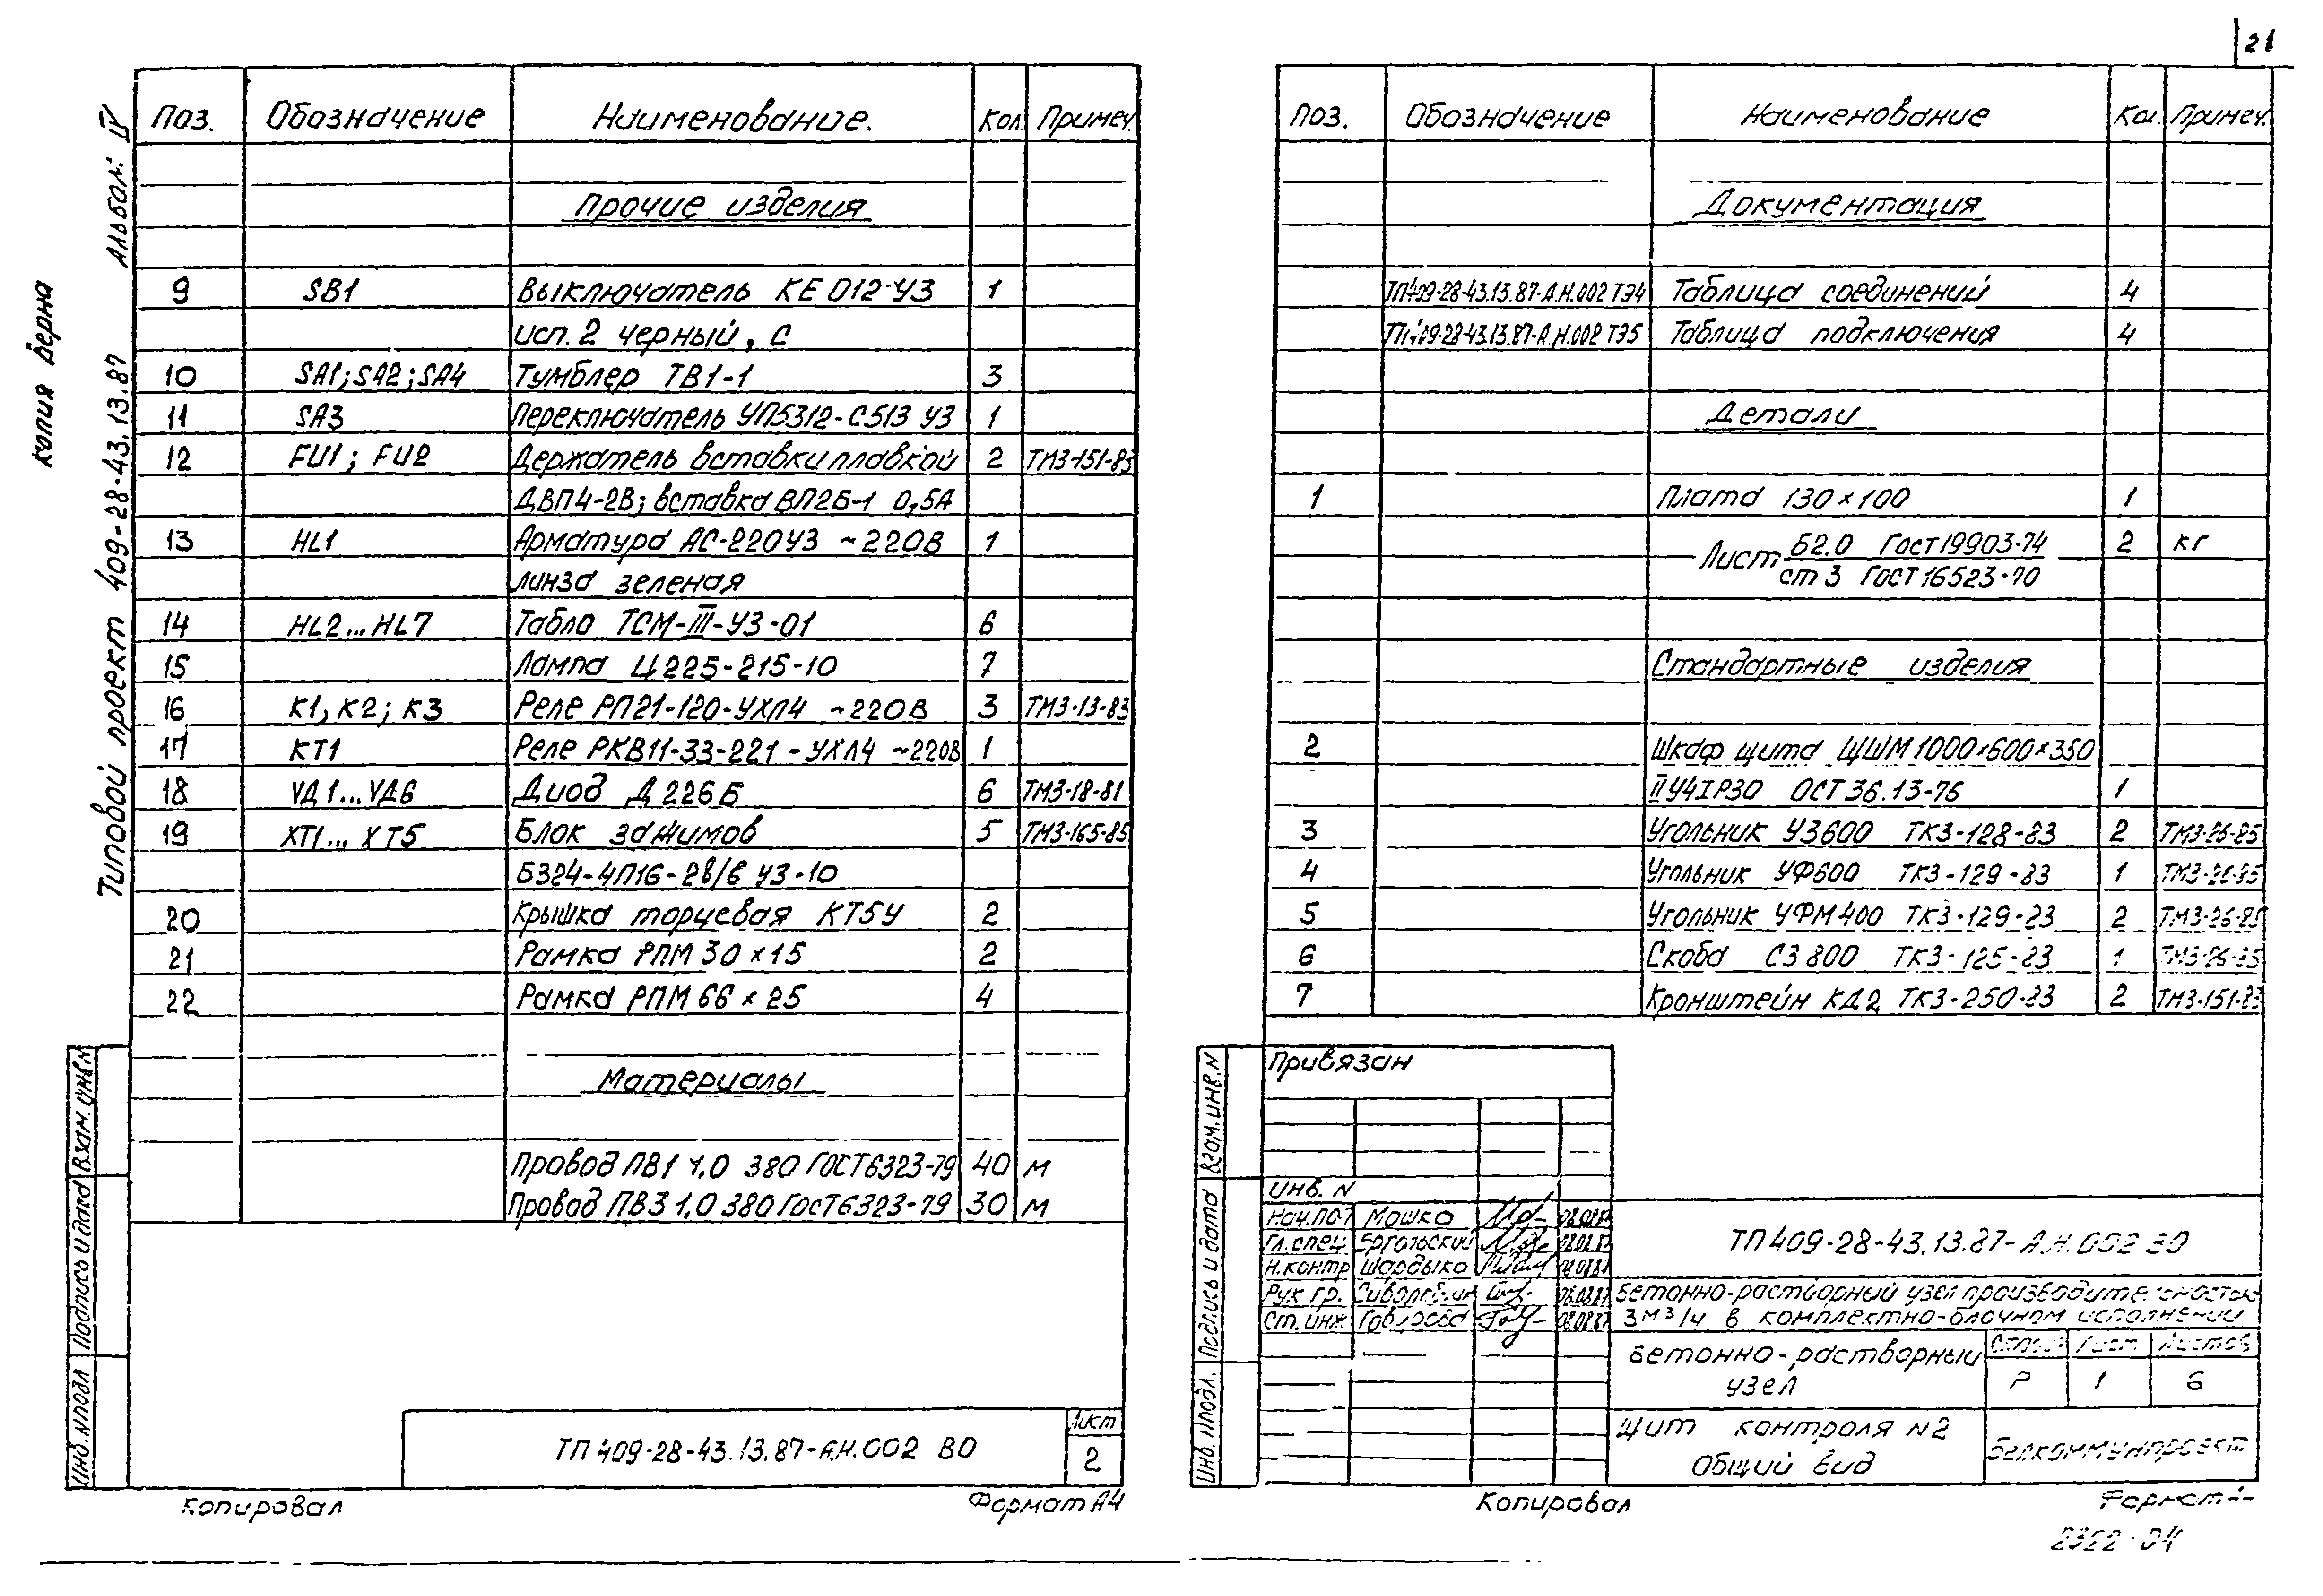 21
копия верна
Типовой проект 409-28-43.13.87 Альбом IV
Поз. Обозначение Наименование. Кол. Примеч.
Прочие изделия
9 SB1 Выключатель КЕ 012-У3 1
исп. 2 черный, С
10 SA1; SA2; SA4 Тумблер ТВ1-1 3
11 SA3 Переключатель УП5312-С513 У3 1
12 FU1; FU2 Держатель вставки плавкой 2 ТМ3-151-83
ДВП4-2В; вставка ВП2Б-1 0,5А
13 HL1 Арматура АС-220У3 ~220В 1
линза зеленая
14 HL2...HL7 Табло ТСМ-III-У3-01 6
15 Лампа Ц225-215-10 7
16 К1, К2; К3 Реле РП21-120-УХЛ4 ~220В 3 ТМ3-13-83
17 КТ1 Реле РКВ11-33-221-УХЛ4 ~220В 1
18 VД1...VД6 Диод Д226Б 6 ТМ3-18-81
19 ХТ1...ХТ5 Блок зажимов 5 ТМ3-165-85
БЗ24-4П16-2В/В У3-10
20 Крышка торцевая КТ5У 2
21 Рамка РПМ 30×15 2
22 Рамка РПМ 66×25 4
Материалы
Провод ПВ1 1,0 380 ГОСТ 6323-79 40 м
Провод ПВ3 1,0 380 ГОСТ 6323-79 30 м
Инв. № подл Подпись и дата Взам. инв. №
ТП 409-28-43.13.87-А.Н.002 ВО
Лист
2
Копировал Формат А4
Поз. Обозначение Наименование Кол. Примеч.
Документация
ТП409-28-43.13.87-А.Н.002 ТЭ4 Таблица соединений 4
ТП409-28-43.13.87-А.Н.002 ТЭ5 Таблица подключения 4
Детали
1 Плата 130×100 1
Лист Б2.0 ГОСТ 19903-74 2 кг
ст 3 ГОСТ 16523-70
Стандартные изделия
2 Шкаф щита ЩШМ 1000×600×350
II У4 IP30 ОСТ 36.13-76 1
3 Угольник У3600 ТК3-128-83 2 ТМ3-26-85
4 Угольник УФ600 ТК3-129-83 1 ТМ3-26-85
5 Угольник УФМ400 ТК3-129-83 2 ТМ3-26-85
6 Скоба С3800 ТК3-125-83 1 ТМ3-26-85
7 Кронштейн КД2 ТК3-250-83 2 ТМ3-151-83
Инв. № подл. Подпись и дата Взам. инв. N
Привязан
Инв. N
Нач. ПОТ Мошко 08.08.87
Гл. спец Ергольский 08.08.87
Н. контр Шардыко 08.08.87
Рук. гр. 08.08.87
Ст. инж 08.08.87
ТП 409-28-43.13.87-А.Н.002 ВО
Бетонно-растворный узел производительностью
3м³/ч в комплектно-блочном исполнении
Бетонно-растворный
узел
Стадия Лист Листов
Р 1 6
Щит контроля №2
Общий вид
Белкоммунпроект
Копировал Формат